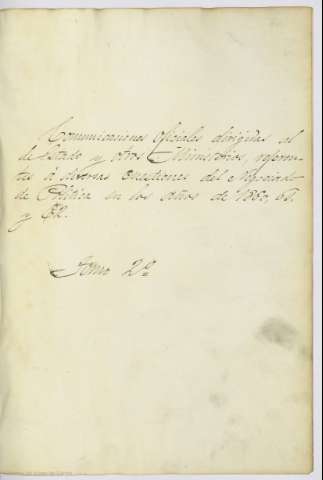 Comunicaciones oficiales dirigidas al
de Estado y otros Ministerios, referen-
tes á diversas cuestiones del Negociado
de Política en los años de 1860, 61.
y 62.
Tomo 2º